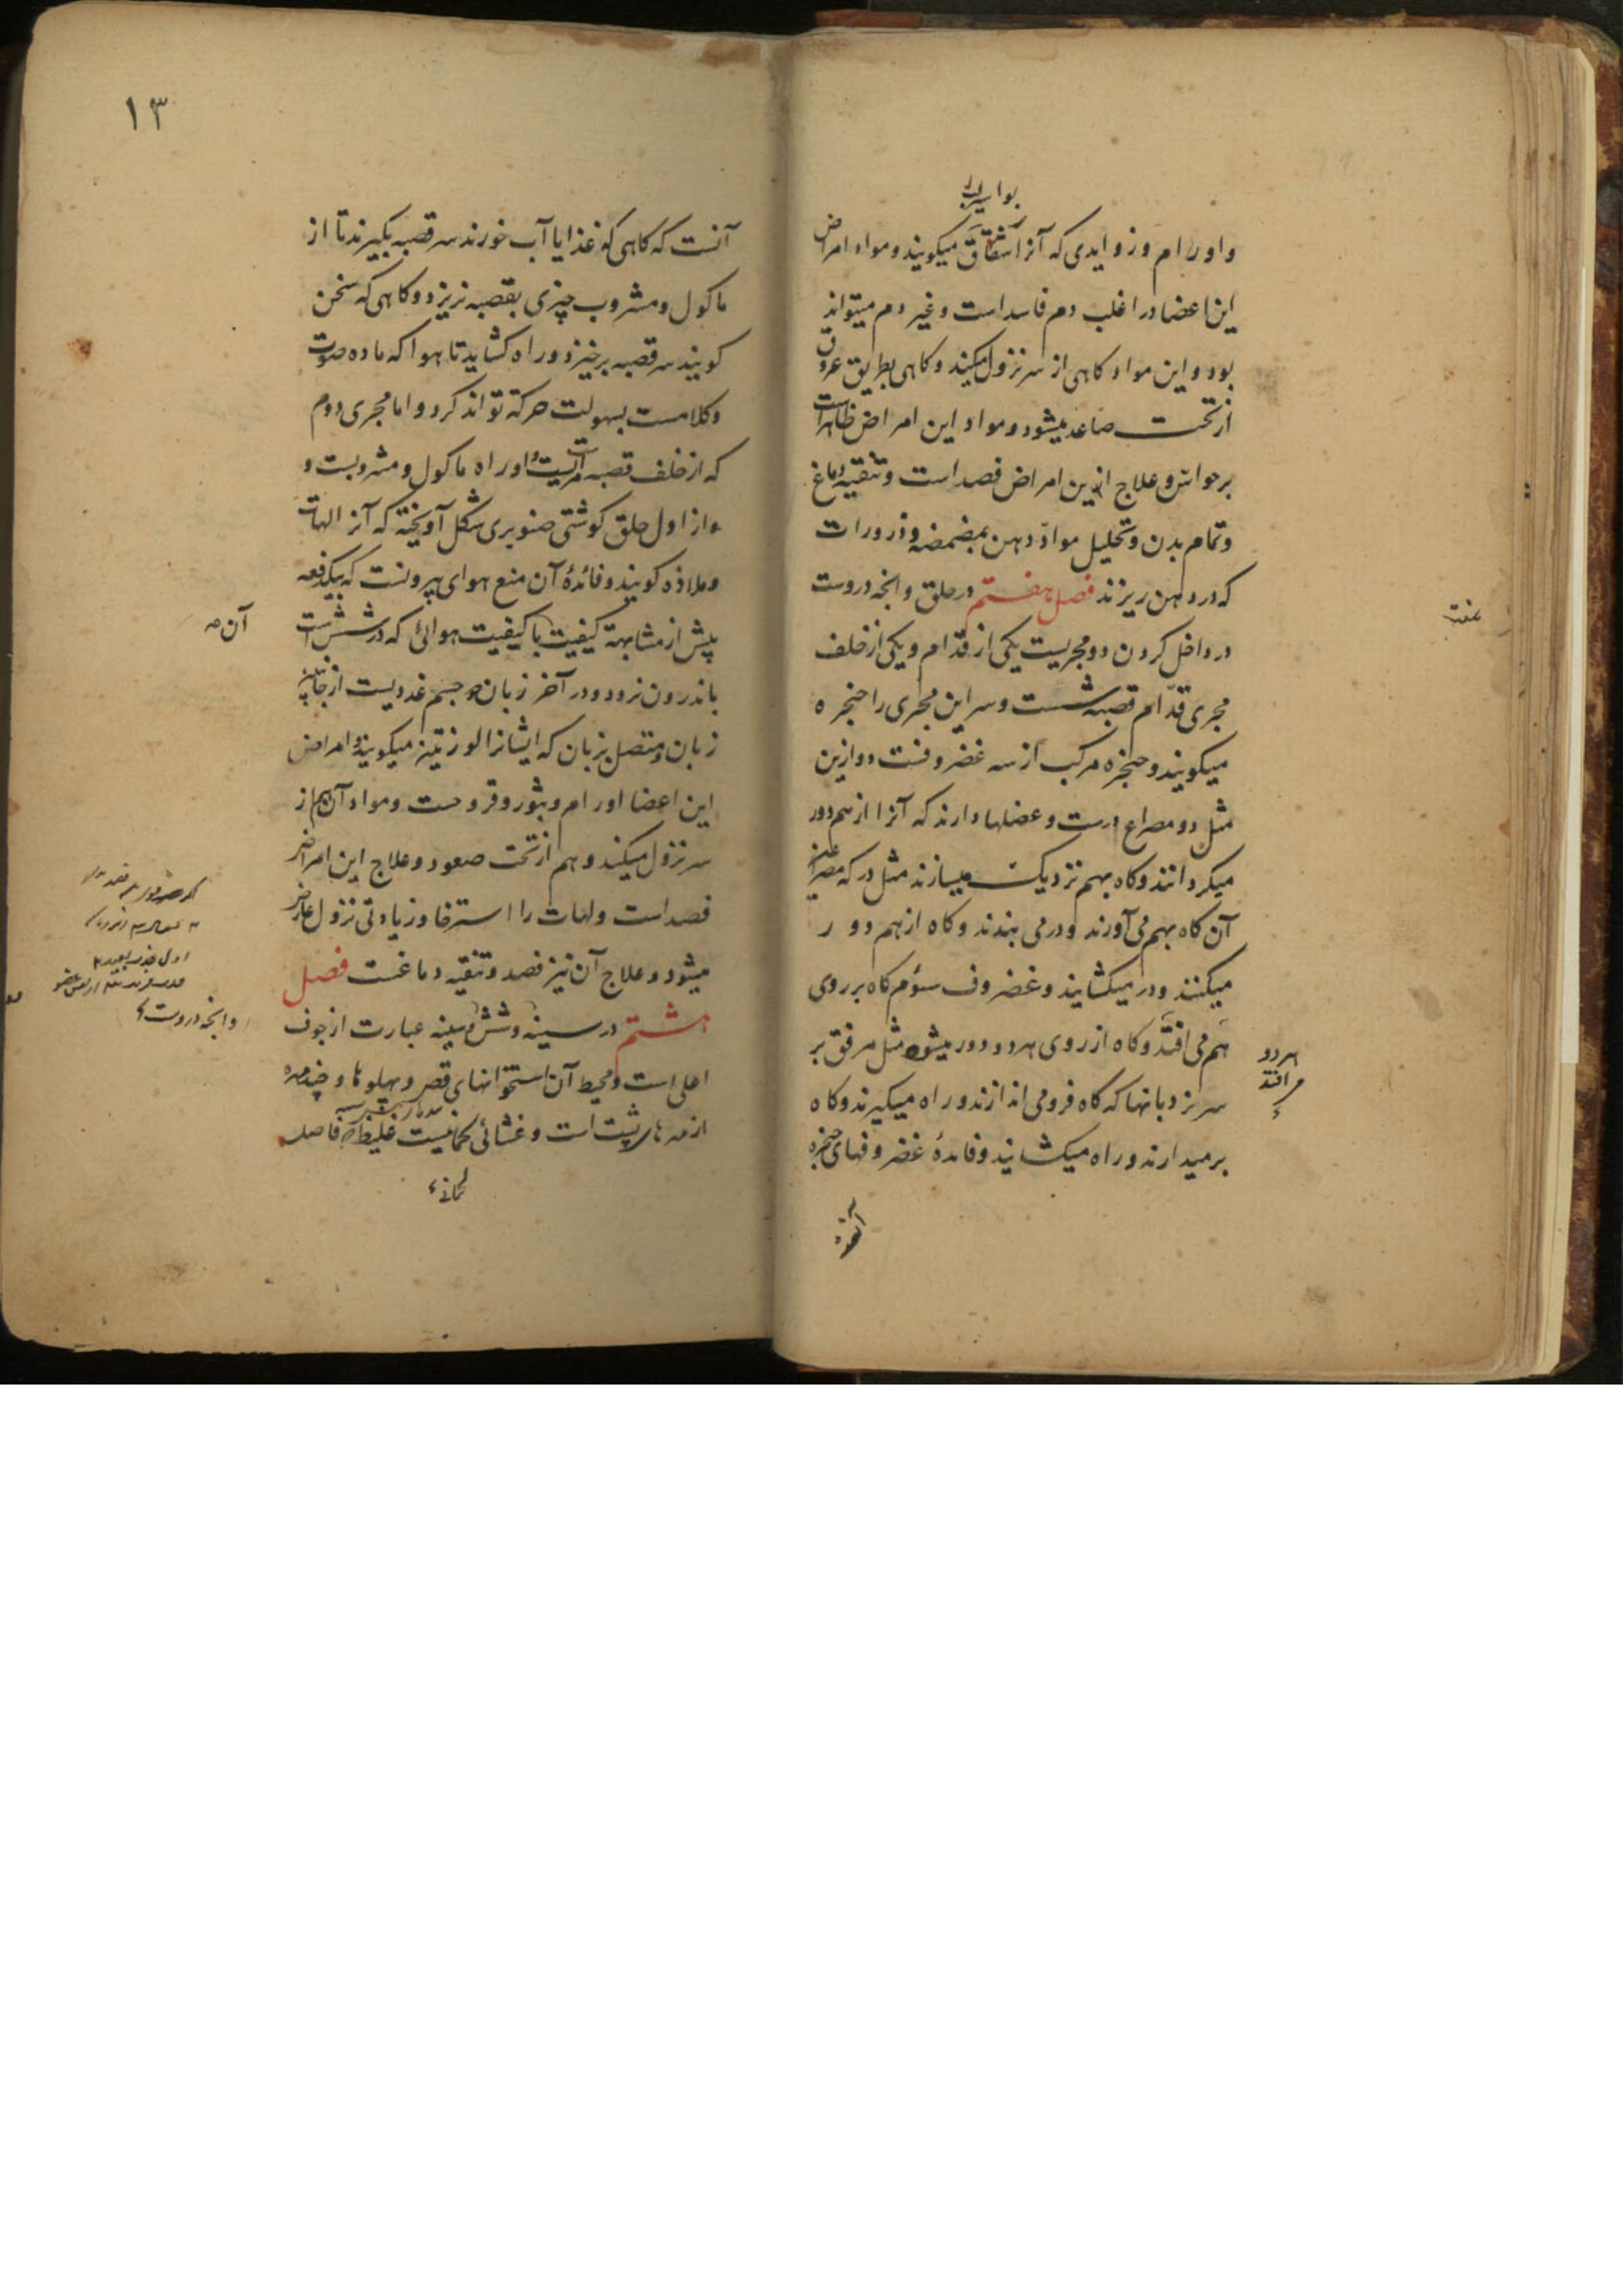 بواسیر لب
و اورام و زوایدی که آنرا شقاق میکویند و مواد امراض
این اعضا در اغلب دم فاسد است و غیر دم میتواند
بود و این مواد کاهی از سر نزول میکند و کاهی بطریق عروق
از تحت صاعد میشود و مواد این امراض ظاهر است
بر حواس و علاج این امراض فصد است و تنقیه دماغ
و تمام بدن و تحلیل مواد دهن بمضمضه و ذرورات
که در دهن ریزند فصل هفتم در حلق و انچه دروست
در داخل کردن دو مجریست یکی از قدام و یکی از خلف
مجری قدّام قصبه ششست و سر این مجری را حنجره
میکویند و حنجره مرکب از سه غضروفست دو ازین
مثل دو مصراع درست و عضلها دارند که آنرا از هم دور
میکردانند و کاه بهم نزدیک میسازند مثل در که مصراعین
آن کاه بهم می آورند و در می بندند و کاه از هم دور
میکنند و در میکشایند و غضروف سئوم کاه بر روی
هم می افتد و کاه از روی هر دو دور میشود مثل مرفق بر
سر بزدبانها که کاه فرو می اندازند و راه میکیرند و کاه
برمیدارند و راه میکشایند و فایدهٔ غضروفهای حنجره
هر دو
می افتد
۱۳
آنست که کاهی که غذا یا آب خورند سر قصبه بکیرند تا از
ماکول و مشروب چیزی بقصبه نریزد و کاهی که سخن
کویند سر قصبه برخیزد و راه کشاید تا هوا که ماده صوت
و کلامست بسهولت حرکة تواند کرد و اما مجری دوم
که از خلف قصبه است مریست و او راه ماکول و مشروبست و
از اول حلق کوشتی صنوبری شکل آویخته که آنرا لهات
و ملاذه کویند و فائدهٔ آن منع هوای بیرونست که بیکدفعه
پیش از مشابهة کیفیت با کیفیت هوائی که در شش است
باندرون نرود و در آخر زبان دو جسم غددیست از جانبین
زبان و متصل بزبان که ایشانرا لوزتین میکویند و امراض
این اعضا اورام و بثور و قروحست و مواد آن هم از
سر نزول میکند و هم از تحت صعود و علاج این امراض
فصد است و لهات را استرخا و زیادتی نزول عارض
میشود و علاج آن نیز فصد و تنقیه دماغست فصل
هشتم در سینه و شش سینه عبارت از جوف
اعلی است و محیط آن استخوانهای قص و پهلوها و چند مهره
از مهرهای پشت است و غشائی لحمانیست غلیظ که فاصله
آن
و انچه دروست